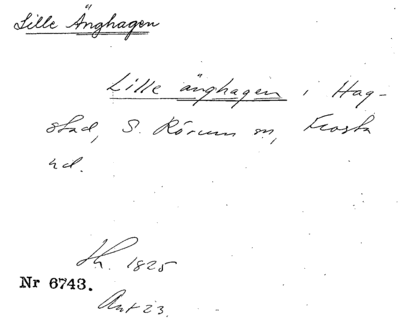 Lille Änghagen
Lille änghagen i Hag-
stad, S. Rörum sn, Frosta
hd.
Th. 1825
Nr 6743.
Ant 23.